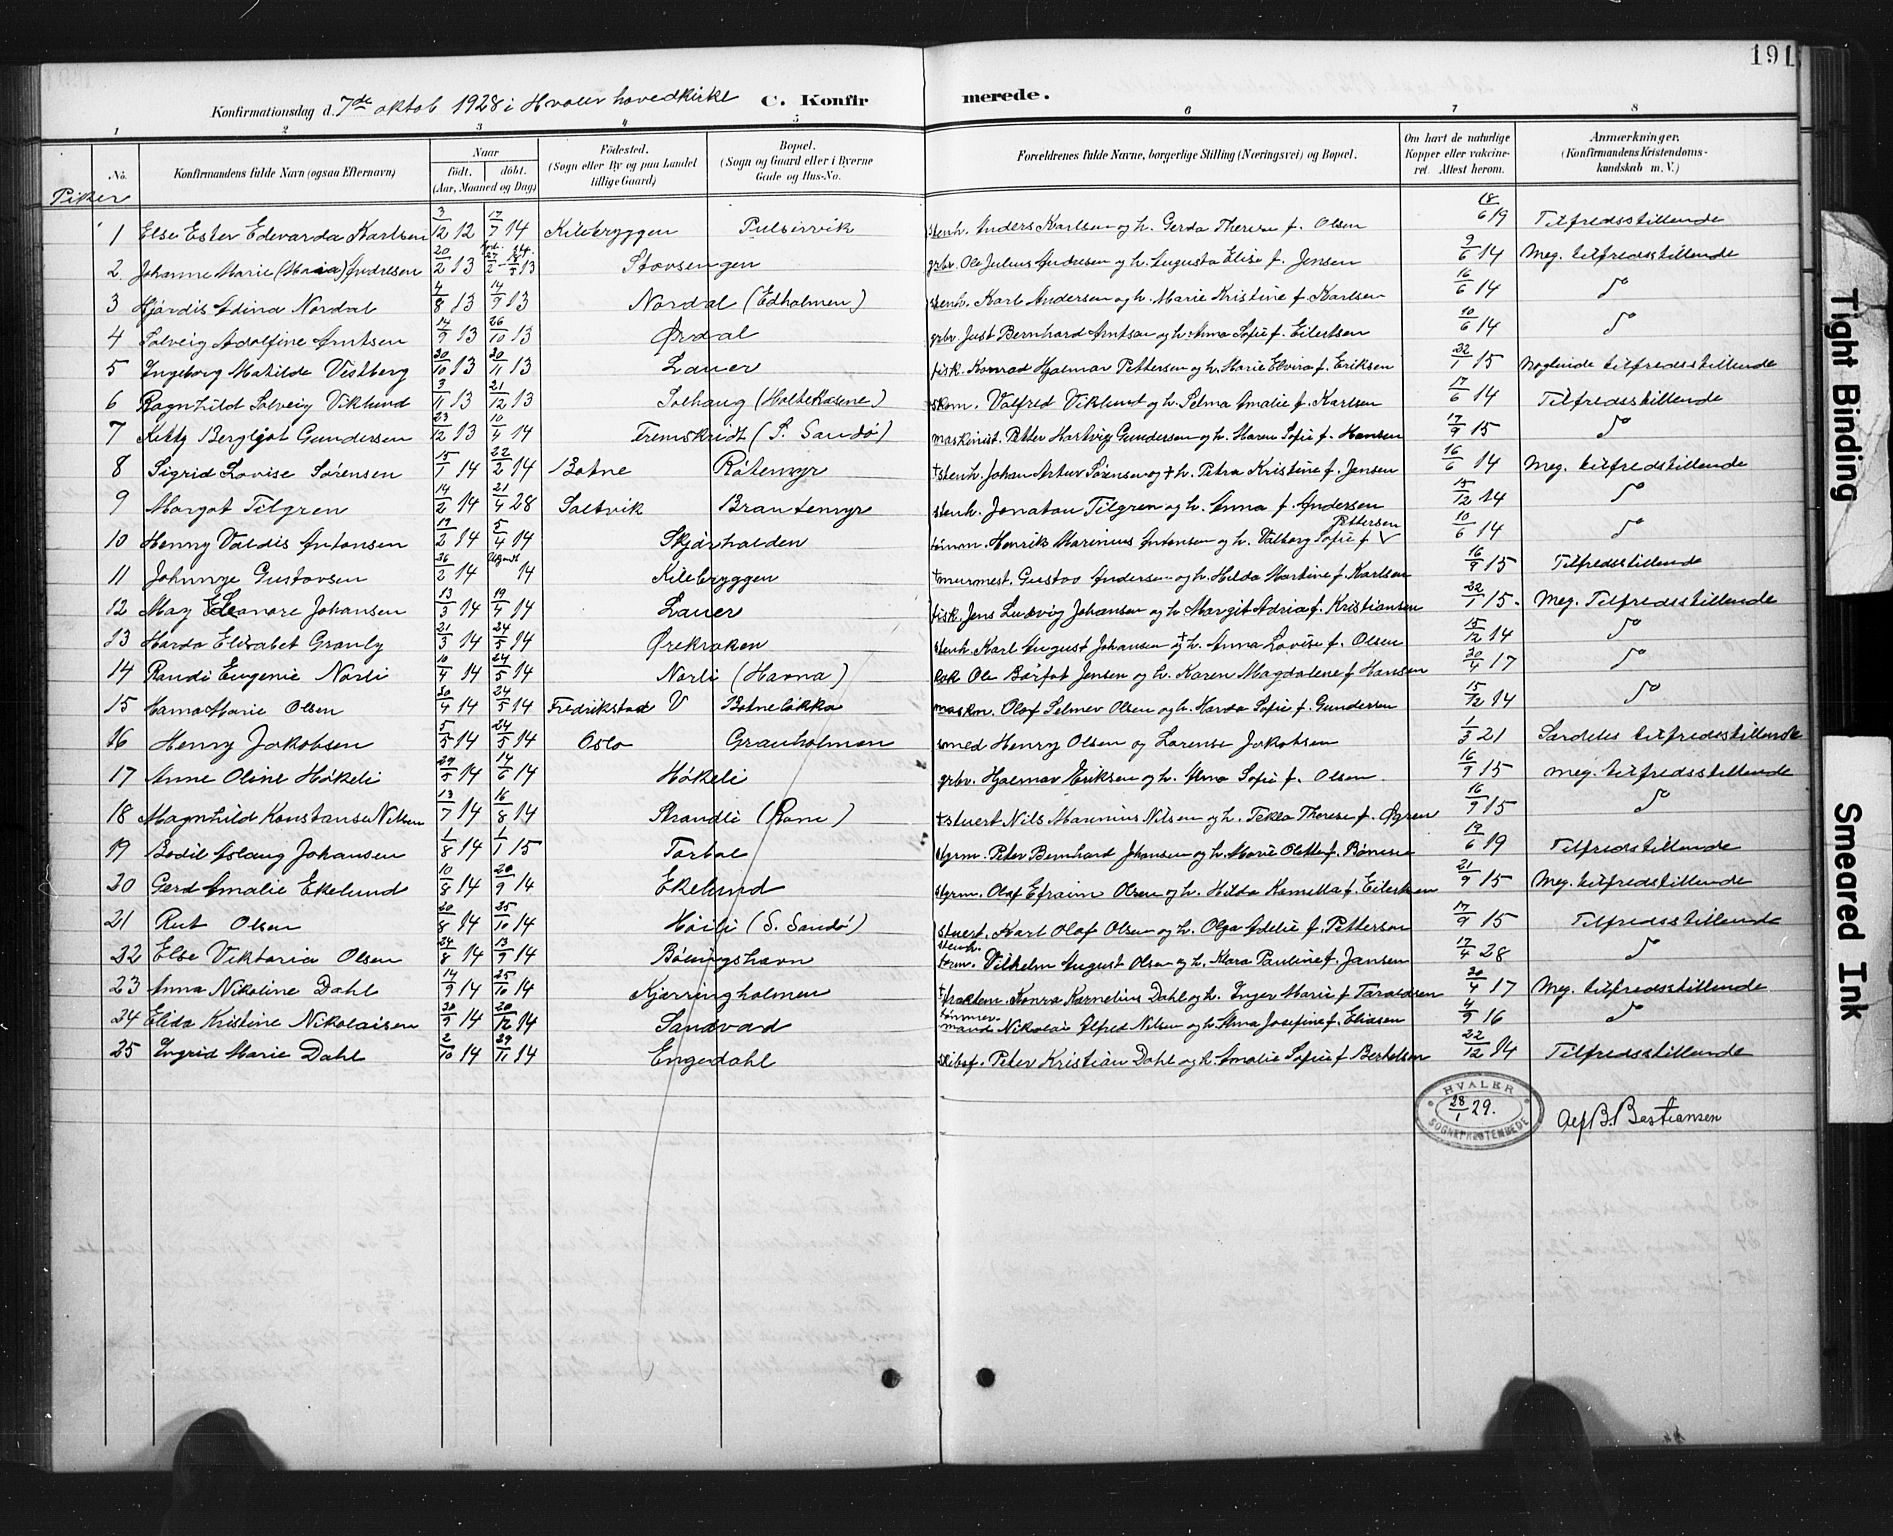 191
Konfirmationsdag d. 7de oktob 1928 i Hvaler hovedkirke C. Konfirmerede.
1 2 3 4 5 6 7 8
No. Konfirmandens fulde Navn (ogsaa Efternavn) Naar født. døbt. (Aar, Maaned og Dag) Fødested. (Sogn eller By og paa Landet tillige Gaard) Bopæl. (Sogn og Gaard eller i Byerne Gade og Hus-No. Forældrenes fulde Navne, borgerlige Stilling (Næringsvei) og Bopæl. Om havt de naturlige Kopper eller vakcineret. Attest herom. Anmærkninger. (Konfirmandens Kristendomskundskab m. V.)
Piker
1 Else Ester Edevarda Karlsen 3/12 12 17/7 14 Kilebryggen Pulservik stenh. Anders Karlsen og h. Gerda Therese f. Olsen 18/6 19 Tilfredsstillende
2 Johanne Marie (Maria) Andresen 20/2 13 Stovsengen grbr. Ole Julius Andresen og h. Augusta Elise f. Jensen 9/6 14 Meg. tilfredsstillende
3 Hjørdis Adina Nordal 4/8 13 14/9 13 Nordal (Edholmen) stenh. Karl Andersen og h. Marie Kristine f. Karlsen 16/6 14 do
4 Solveig Adolfine Arntsen 14/9 13 26/10 13 Ørdal grbr. Just Bernhard Arntsen og h. Anna Sofie f. Eilertsen 10/6 14 do
5 Ingeborg Matilde Vestberg 20/10 13 20/11 13 Lauer fisk. Konrad Hjalmar Pettersen og h. Marie Elvira f. Eriksen 22/1 15 Noglende tilfredsstillende
6 Ragnhild Solveig Viklund 3/11 13 21/12 13 Solhaug (Holtekasene) skom. Valfred Viklund og h. Selma Amalie f. Karlsen 17/6 14 Tilfredsstillende
7 Kitty Bergljot Gundersen 23/12 13 10/4 14 Fremskridt (S. Sandø) maskinist. Petter Hartvig Gundersen og h. Maren Sofie f. Hansen 17/9 15 do
8 Sigrid Lovise Sørensen 15/1 14 22/2 14 Botne Røtemyr †stenh. Johan Artur Sørensen og † h. Petra Kristine f. Jensen 16/6 14 Meg. tilfredstillende
9 Margot Tilgren 14/2 14 21/4 28 Saltvik Brantemyr stenh. Jonatan Tilgren og h. Anna f. Andersen 15/12 14 do
10 Henny Valdis Antonsen 19/2 14 5/4 14 Skjærhalden tømm. Henrik Marinius Antonsen og h. Valborg Sofie f. Pettersen 10/6 14 do
11 Johnnye Gustavsen 26/2 14 14 Kilebryggen †murmest. Gustav Andersen og h. Hilda Martine f. Karlsen 16/9 15 Tilfredsstillende
12 May Eleanore Johansen 13/3 14 19/4 14 Lauer fisk. Jens Ludvig Johansen og h. Margit Adria f. Kristiansen 22/1 15. Meg. Tilfredsstillende
13 Harda Elisabet Granly 21/3 14 24/5 14 Ørekroken stenh. Karl August Johansen og † h. Anna Lovise f. Olsen 15/12 14 do
14 Randi Eugenie Norli 10/4 14 24/5 14 Norli (Havna) Ole Børfot Jensen og h. Karen Magdalene f. Hansen 20/4 17 do
15 Hanna Marie Olsen 30/4 14 24/5 14 Fredrikstad V Botneløkka maskn. Olaf Selmer Olsen og h. Harda Sofie f. Gundersen 15/12 14 do
16 Henny Jakobsen 5/5 14 24/5 14 Oslo Granholmen smed Henry Olsen og Lorense Jakobsen 1/3 21 Særdeles tilfredsstillende
17 Anne Oline Høkeli 29/5 14 14/6 14 Høkeli grbr. Hjalmar Eriksen og h. Anna Sofie f. Olsen 16/9 15 meg. tilfredsstillende
18 Magnhild Konstanse Nilsen 13/7 14 16/8 14 Strandli (Rom) †stuert Nils Marinius Nilsen og h. Tekla Therese f. Øgren 16/9 15 do
19 Bodil Aslaug Johansen 1/8 14 1/1 15 Torbal styrm. Peter Bernhard Johansen og h. Marie Olette f. Bønesie 19/6 19 Tilfredsstillende
20 Gerd Amalie Ekelund 10/8 14 20/9 14 Ekelund styrm. Olaf Efraim Olsen og h. Hilda Kamilla f. Eilertsen 21/9 15 Meg. tilfredstillende
21 Rut Olsen 20/8 14 25/10 14 Høili (S. Sandø) stuert. Karl Olaf Olsen og h. Olga Adelie f. Petterson 17/9 15 Tilfredsstillende
22 Else Viktoria Olsen 24/8 14 13/9 14 Bølingshavn stenh. form. Vilhelm August Olsen og h. Klara Pauline f. Jansen 17/4 28 do
23 Anna Nikoline Dahl 14/9 14 25/10 14 Kjærringholmen Konra Kornelius Dahl og h. Inger Marie f. Taraldsen 20/4 17 Meg. tilfredsstillende
24 Elida Kristine Nikolaisen 20/9 14 20/12 14 Sandvad tømmermand Nikolai Alfred Nilsen og h. Anna Josefine f. Eliasen 4/9 16 do
25 Ingrid Marie Dahl 2/10 14 29/11 14 Engedahl skibsf. Peter Kristian Dahl og h. Amalie Sofie f. Bertelsen 22/12 14 Tilfredsstillende
HVALER 28/1 29. SOGNEPRESTEMBEDE Alf B. Bastiansen
Tight Binding
Smeared Ink